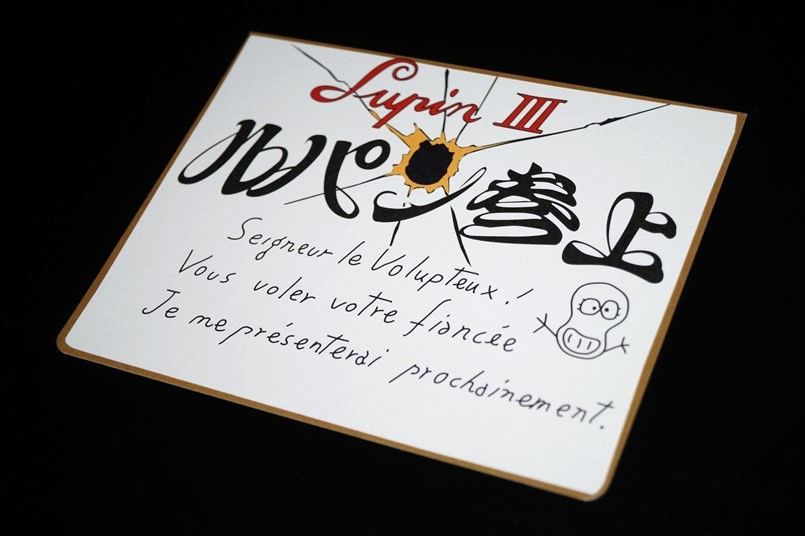 Lupin III
ルパン参上
Seigneur le Volupteux!
Vous voler votre fiancée
Je me présenterai prochainement.